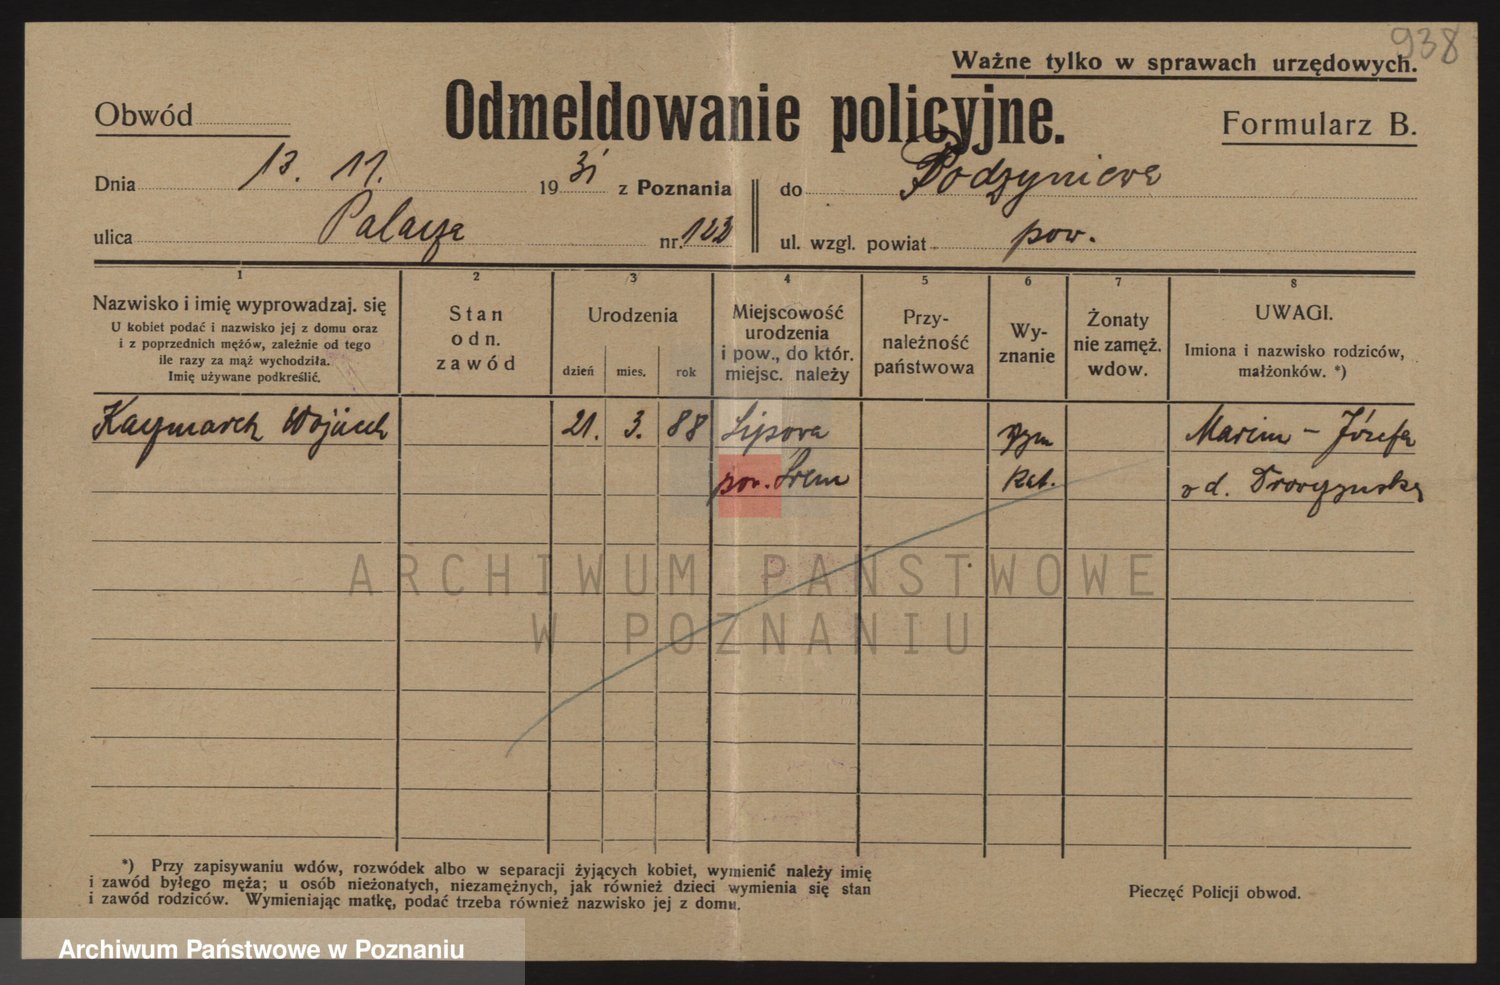 938
Ważne tylko w sprawach urzędowych.
Obwód
Odmeldowanie policyjne.
Formularz B.
Dnia 13. 11. 1931 z Poznania do
ulica Palacza nr. 123 ul. wzgl. powiat pow.
1 2 3 4 5 6 7 8
Nazwisko i imię wyprowadzaj. się
U kobiet podać i nazwisko jej z domu oraz
i z poprzednich mężów, zależnie od tego
ile razy za mąż wychodziła.
Imię używane podkreślić.
Stan
odn.
zawód
Urodzenia
dzień mies. rok
Miejscowość
urodzenia
i pow., do któr.
miejsc. należy
Przy-
należność
państwowa
Wy-
znanie
Żonaty
nie zamęż.
wdow.
UWAGI.
Imiona i nazwisko rodziców,
małżonków. *)
Kaczmarek Wojciech 21. 3. 88 Lipowa rzym Marcin - Józefa
pow. Śrem kat. z d.
ARCHIWUM PAŃSTWOWE
W POZNANIU
*) Przy zapisywaniu wdów, rozwódek albo w separacji żyjących kobiet, wymienić należy imię
i zawód byłego męża; u osób nieżonatych, niezamężnych, jak również dzieci wymienia się stan
i zawód rodziców. Wymieniając matkę, podać trzeba również nazwisko jej z domu.
Pieczęć Policji obwod.
Archiwum Państwowe w Poznaniu